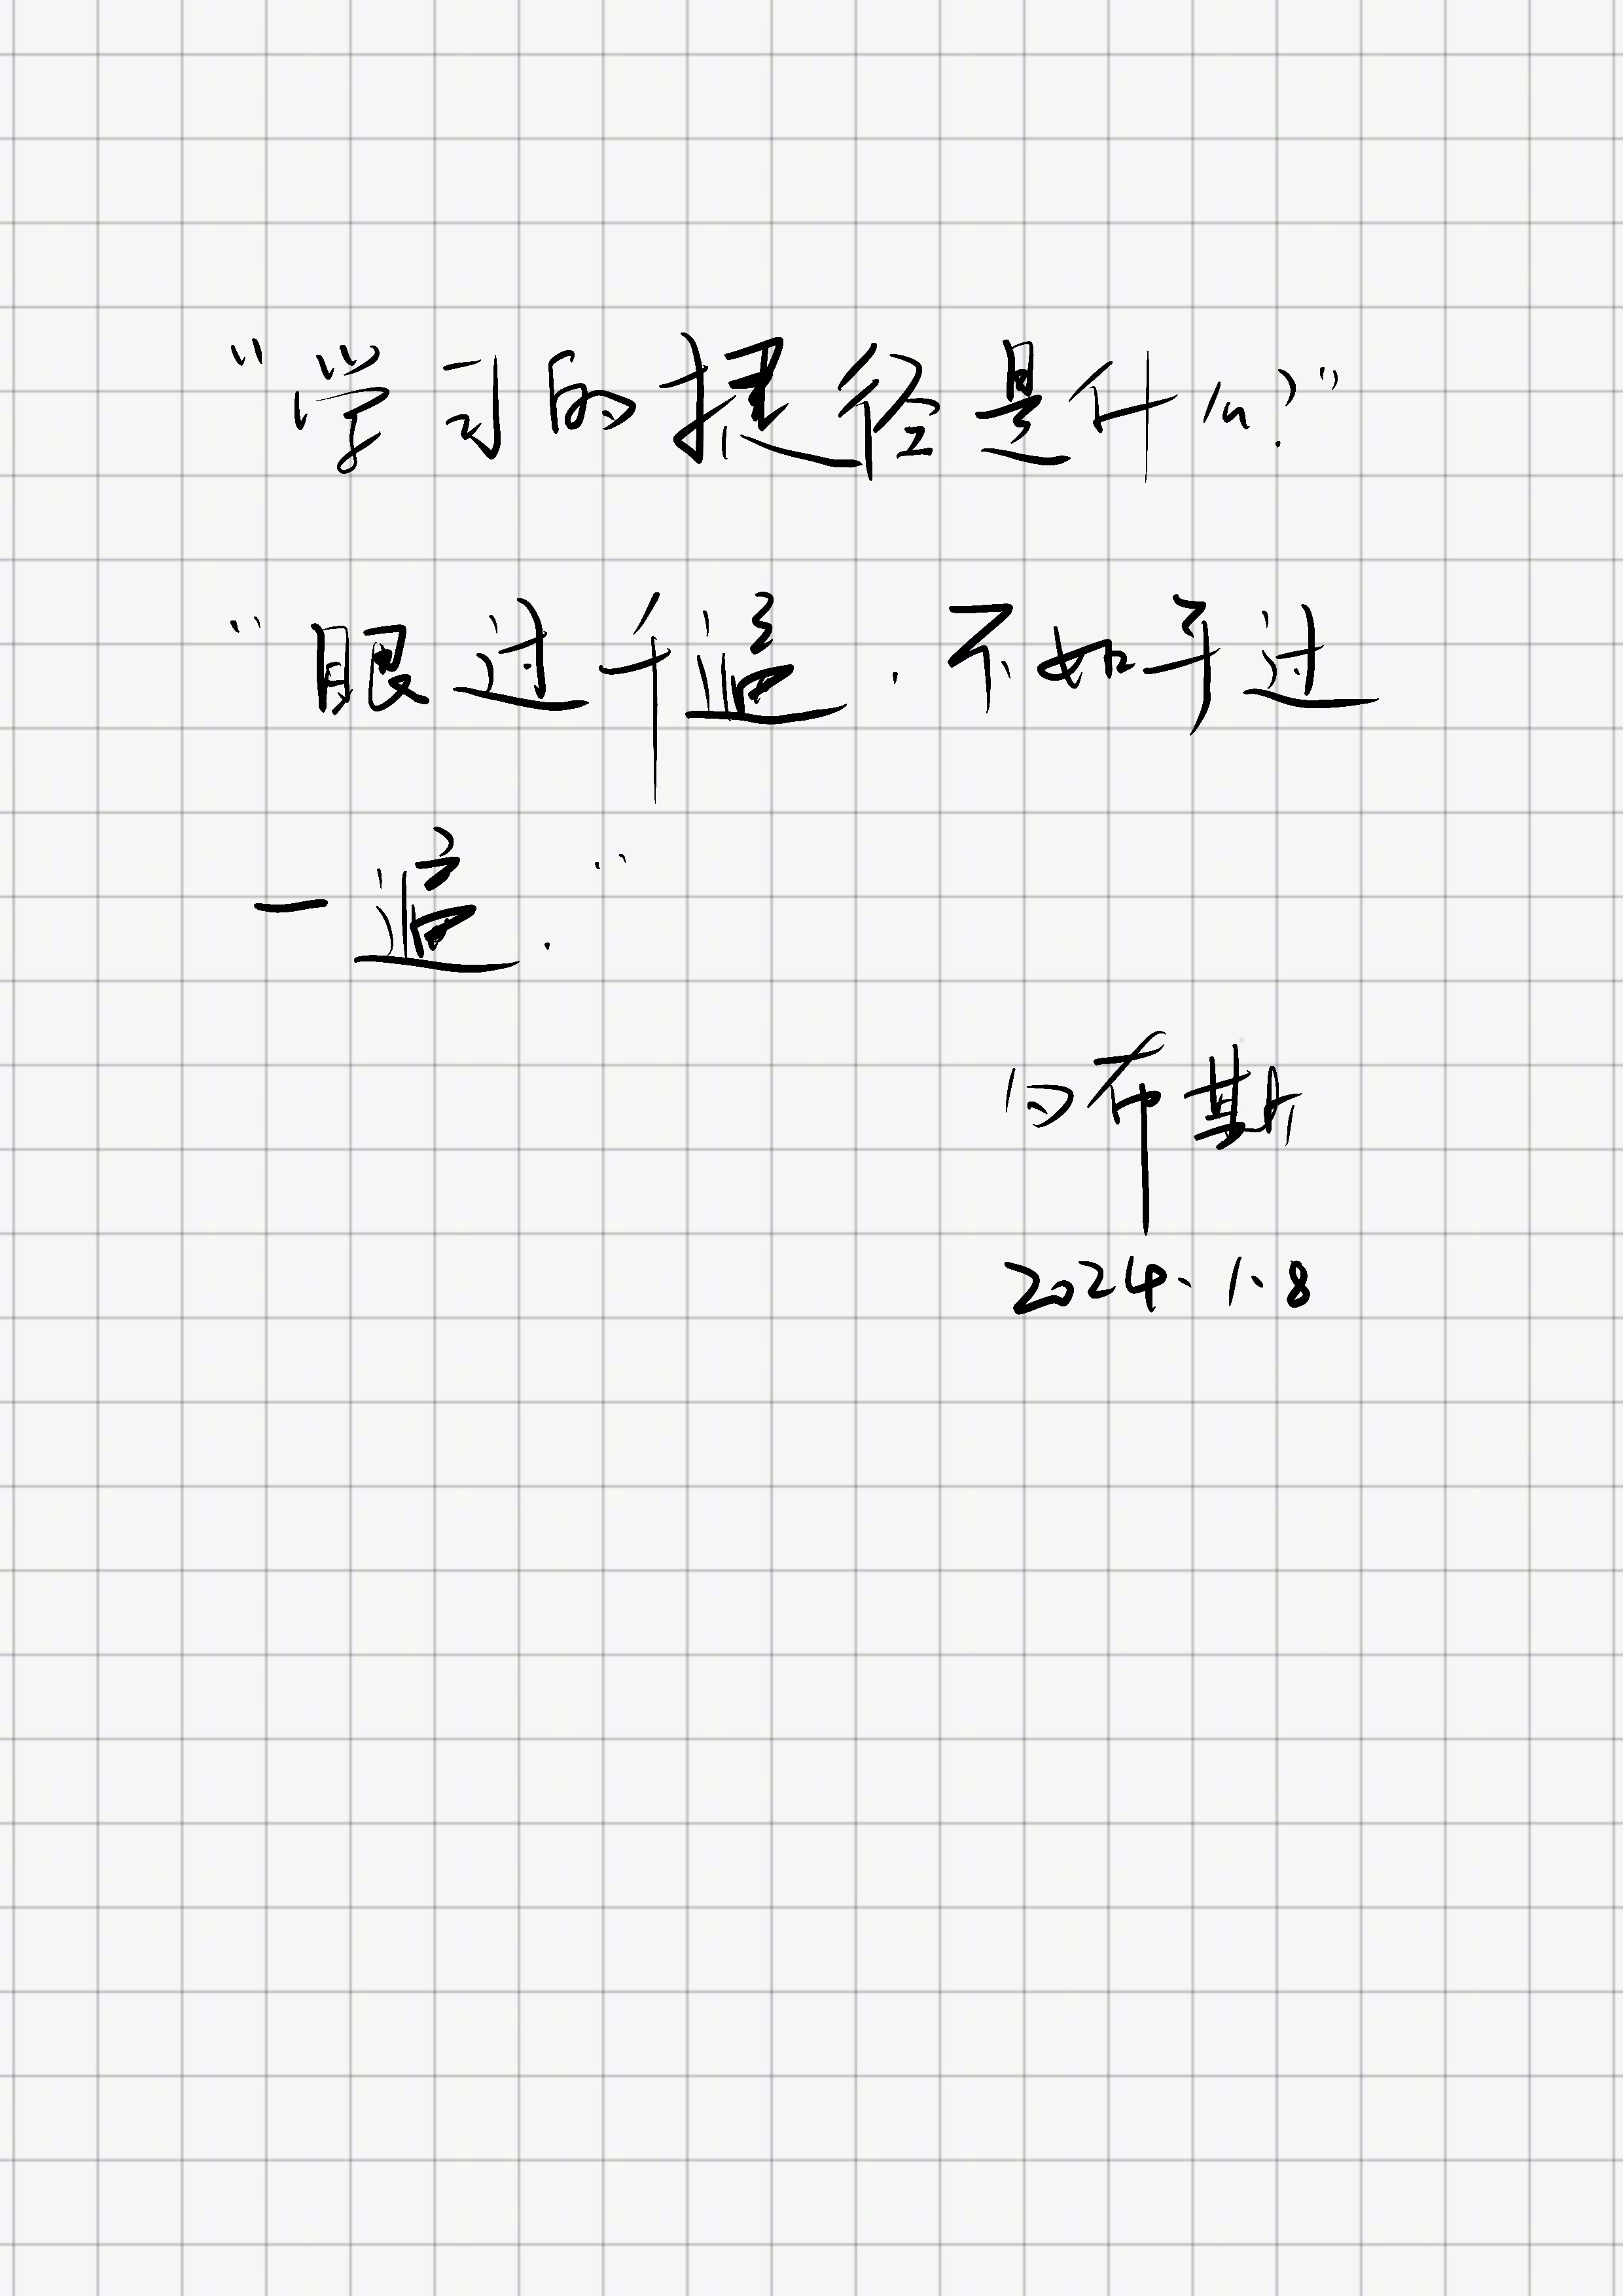 “学习的捷径是什么?”
“眼过千遍.不如手过
一遍.”
布斯
2024.1.8